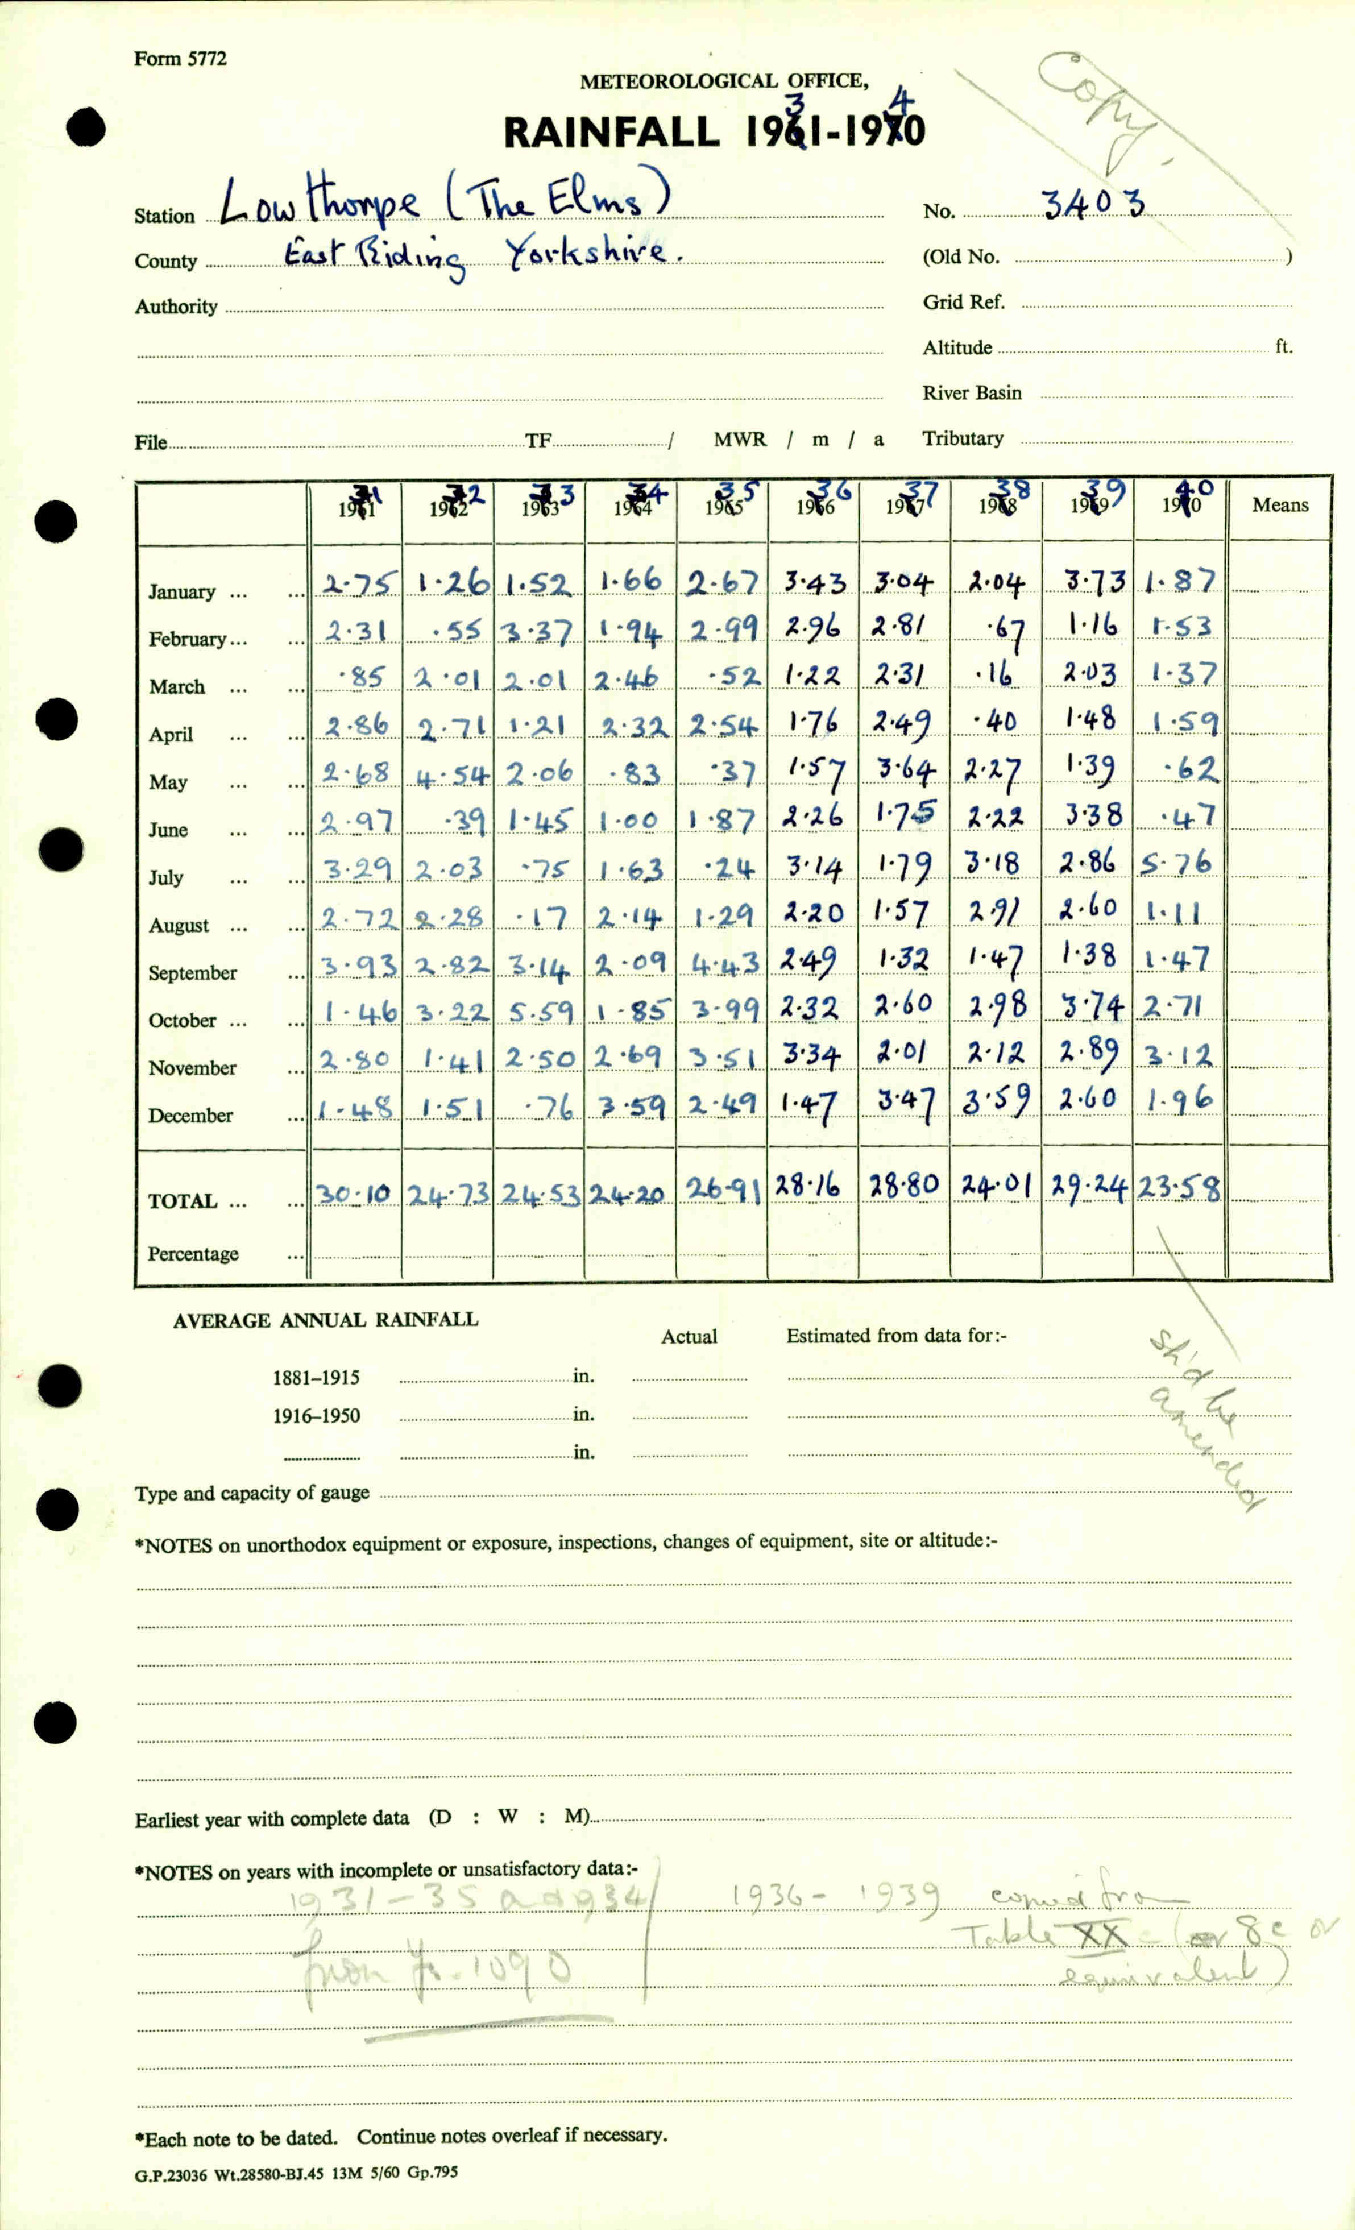 Form 5772
Copy.
METEOROLOGICAL OFFICE,
RAINFALL 1931-1940
Station Lowthorpe (The Elms) No. 3403
County East Riding Yorkshire. (Old No. )
Authority Grid Ref.
Altitude ft.
River Basin
File TF / MWR / m / a Tributary
1931 1932 1933 1934 1935 1936 1937 1938 1939 1940 Means
January ... ... 2.75 1.26 1.52 1.66 2.67 3.43 3.04 2.04 3.73 1.87
February ... ... 2.31 .55 3.37 1.94 2.99 2.96 2.81 .67 1.16 1.53
March ... ... .85 2.01 2.01 2.46 .52 1.22 2.31 .16 2.03 1.37
April ... ... 2.86 2.71 1.21 2.32 2.54 1.76 2.49 .40 1.48 1.59
May ... ... 2.68 4.54 2.06 .83 .37 1.57 3.64 2.27 1.39 .62
June ... ... 2.97 .39 1.45 1.00 1.87 2.26 1.75 2.22 3.38 .47
July ... ... 3.29 2.03 .75 1.63 .24 3.14 1.79 3.18 2.86 5.76
August ... ... 2.72 2.28 .17 2.14 1.29 2.20 1.57 2.91 2.60 1.11
September ... 3.93 2.82 3.14 2.09 4.43 2.49 1.32 1.47 1.38 1.47
October ... ... 1.46 3.22 5.59 1.85 3.99 2.32 2.60 2.98 3.74 2.71
November ... 2.80 1.41 2.50 2.69 3.51 3.34 2.01 2.12 2.89 3.12
December ... 1.48 1.51 .76 3.59 2.49 1.47 3.47 3.59 2.60 1.96
TOTAL ... ... 30.10 24.73 24.53 24.20 26.91 28.16 28.80 24.01 29.24 23.58
Percentage ...
AVERAGE ANNUAL RAINFALL
Actual Estimated from data for:-
1881-1915 in.
1916-1950 in.
in.
sh'd be
amended
Type and capacity of gauge
*NOTES on unorthodox equipment or exposure, inspections, changes of equipment, site or altitude:-
Earliest year with complete data (D : W : M)
*NOTES on years with incomplete or unsatisfactory data:-
1931-35 1936-1939 copied from
from 1090 Table XX (or 8c or
equivalent)
*Each note to be dated. Continue notes overleaf if necessary.
G.P.23036 Wt.28580-BJ.45 13M 5/60 Gp.795